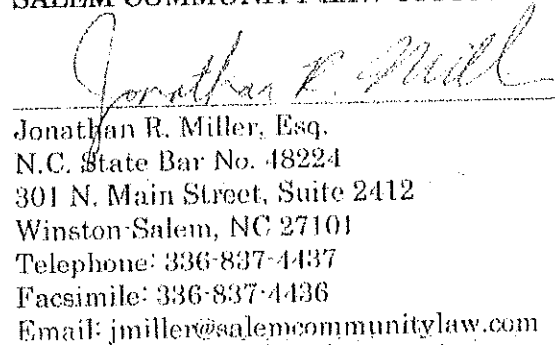 SALEM COMMUNITY LAW
Jonathan R. Mill
Jonathan R. Miller, Esq.
N.C. State Bar No. 48224
301 N. Main Street, Suite 2412
Winston-Salem, NC 27101
Telephone: 336-837-4437
Facsimile: 336-837-4436
Email: jmiller@salemcommunitylaw.com